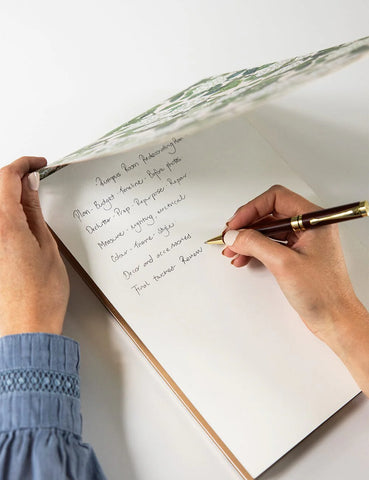 Rumpus Room Redecorating Plan
Plan - Budget - timeline - Before photos
Declutter - Prep - Repurpose - Repair
Measure - lighting, electrical
Colour - theme - style
Decor and accessories
Final touches - Review